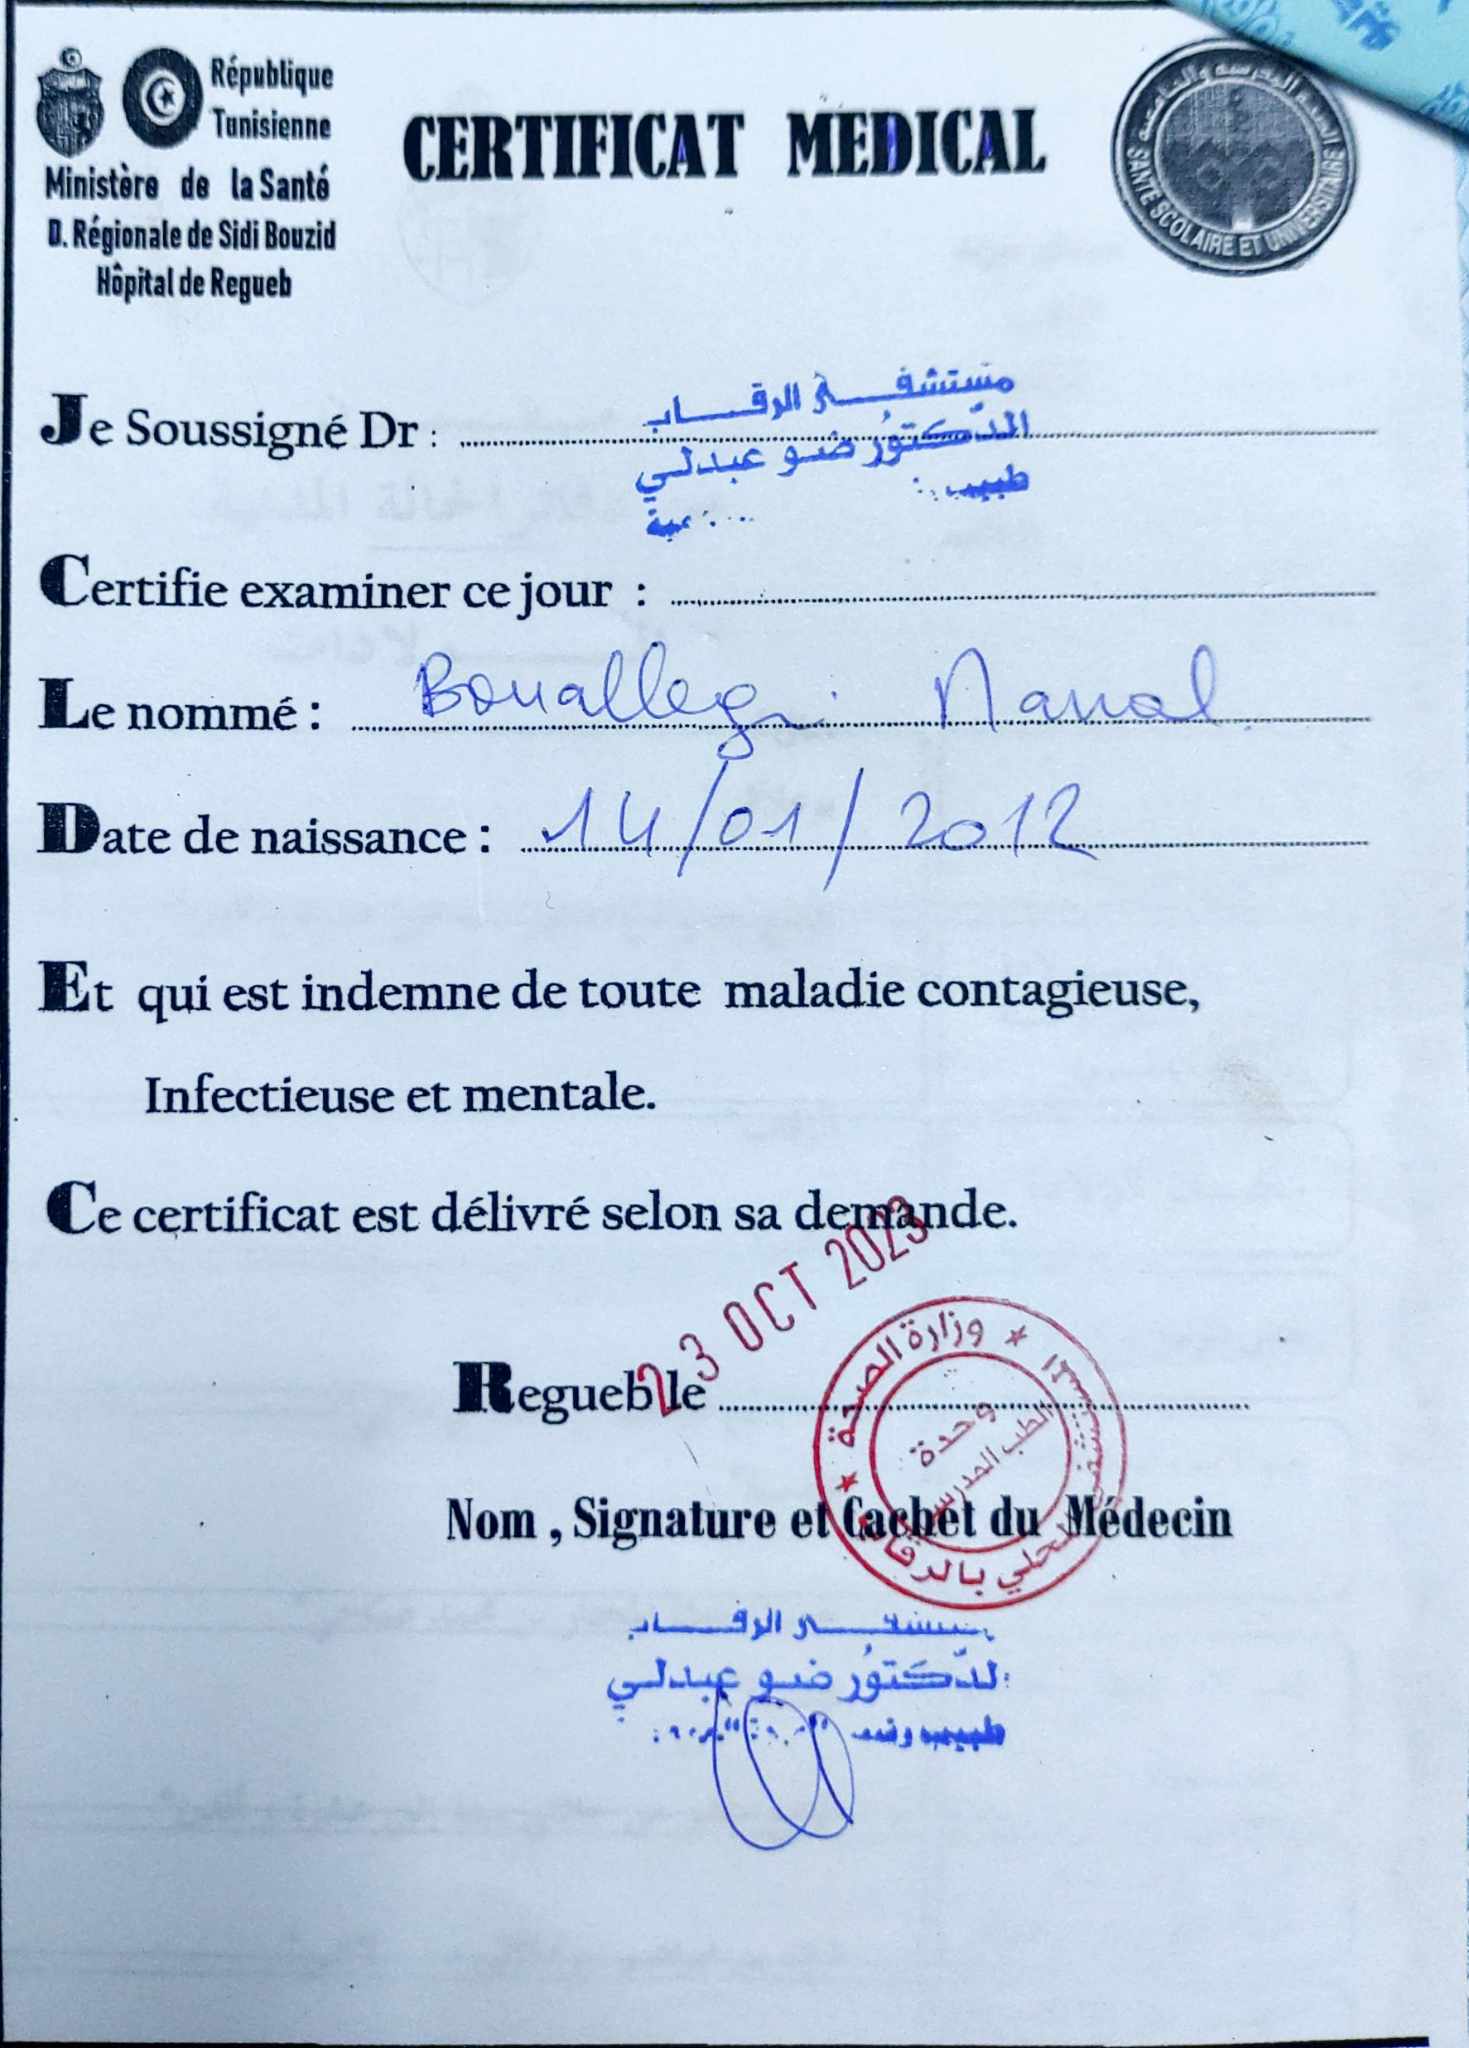 République
Tunisienne
Ministère de la Santé
D. Régionale de Sidi Bouzid
Hôpital de Regueb
CERTIFICAT MEDICAL
SANTE SCOLAIRE ET UNIVERSITAIRE
Je Soussigné Dr :
مستشفى الرقاب
الدّكتور ضو عبدلي
طبيب
Certifie examiner ce jour :
Le nommé : Bouallegi Manal
Date de naissance : 14/01/2012
Et qui est indemne de toute maladie contagieuse,
Infectieuse et mentale.
Ce certificat est délivré selon sa demande.
23 OCT 2023
Regueb le
وزارة الصحة
المستشفى المحلي بالرقاب
وحدة
الطب المدرسي
Nom , Signature et Cachet du Médecin
مستشفى الرقاب
الدّكتور ضو عبدلي
طبيب